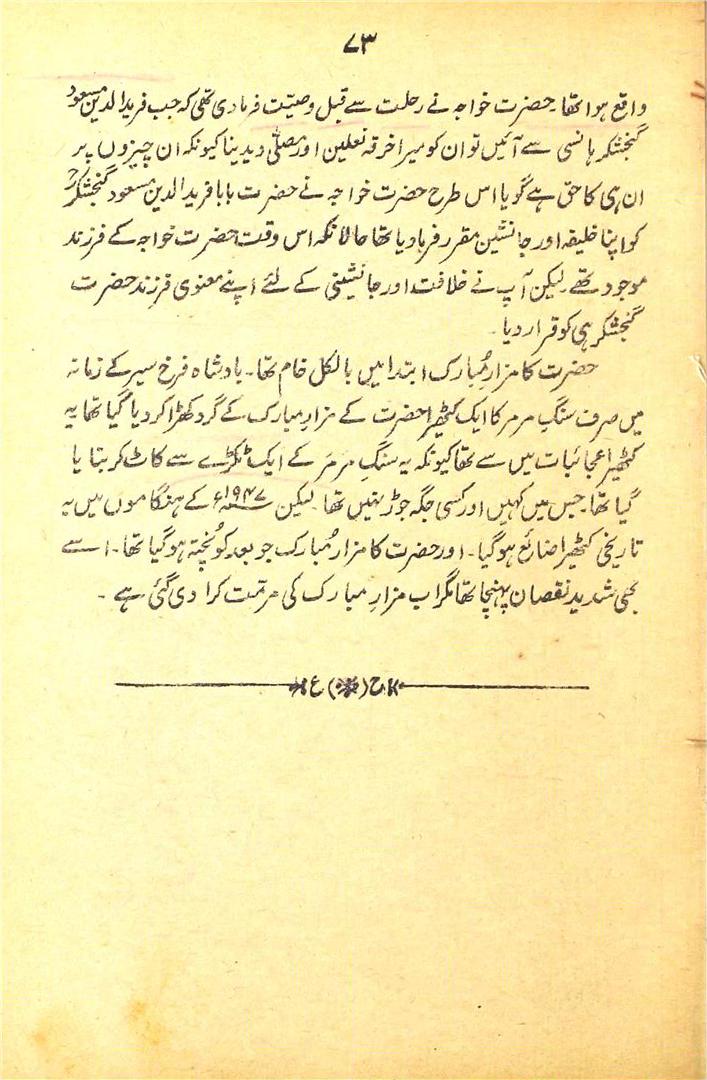 ۷۳
واقع ہوا تھا۔ حضرت خواجہ نے رحلت سے قبل وصیّت فرمادی تھی کہ جب فریدالدین مسعود
گنجشکر ہانسی سے آئیں تو ان کو میرا خرقہ نعلین اور مصلّٰی دیدینا کیونکہ ان چیزوں پر
ان ہی کا حق ہے گویا اس طرح حضرت خواجہ نے حضرت بابا فریدالدین مسعود گنجشکرؒ
کو اپنا خلیفہ اور جانشین مقرر فرمادیا تھا حالانکہ اس وقت حضرت خواجہ کے فرزند
موجود تھے۔ لیکن آپ نے خلافت اور جانشینی کے لئے اپنے معنوی فرزند حضرت
گنجشکر ہی کو قرار دیا۔
حضرت کا مزار مُبارک ابتدا میں بالکل خام تھا۔ بادشاہ فرخ سیر کے زمانہ
میں صرف سنگِ مرمر کا ایک کٹھیرا حضرت کے مزارِ مبارک کے گرد کھڑا کر دیا گیا تھا یہ
کٹھیرا عجائبات میں سے تھا کیونکہ یہ سنگِ مرمر کے ایک ٹکڑے سے کاٹ کر بنایا
گیا تھا۔ جس میں کہیں اور کسی جگہ جوڑ نہیں تھا۔ لیکن ۱۹۴۷ء کے ہنگاموں میں یہ
تاریخی کٹھیرا ضائع ہوگیا۔ اور حضرت کا مزار مُبارک جو بعد کو پُختہ ہوگیا تھا۔ اسے
بھی شدید نقصان پہنچا تھا مگر اب مزارِ مبارک کی مرمّت کرا دی گئی ہے۔